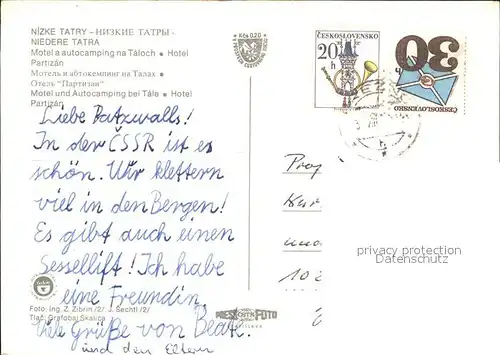 NÍZKE TATRY – НИЗКИЕ ТАТРЫ -
NIEDERE TATRA
Motel a autocamping na Táloch • Hotel
Partizán
Мотель и автокемпинг на Талах •
Отель "Партизан"
Motel und Autocamping bei Tále • Hotel
Partizán
Liebe Patzwalls!
In der ČSSR ist es
schön. Wir klettern
viel in den Bergen!
Es gibt auch einen
Sessellift! Ich habe
eine Freundin.
Foto: Ing. Z. Zibrín /2/, J. Sechtl /2/
Tlač: Grafobal Skalica
Viele Grüße von Beat
und den Eltern
Kčs 0,20
ČESKOSLOVENSKO
20
h
30
h
ČESKOSLOVENSKO
privacy protection
Zdenko.de
PRESSFOTO